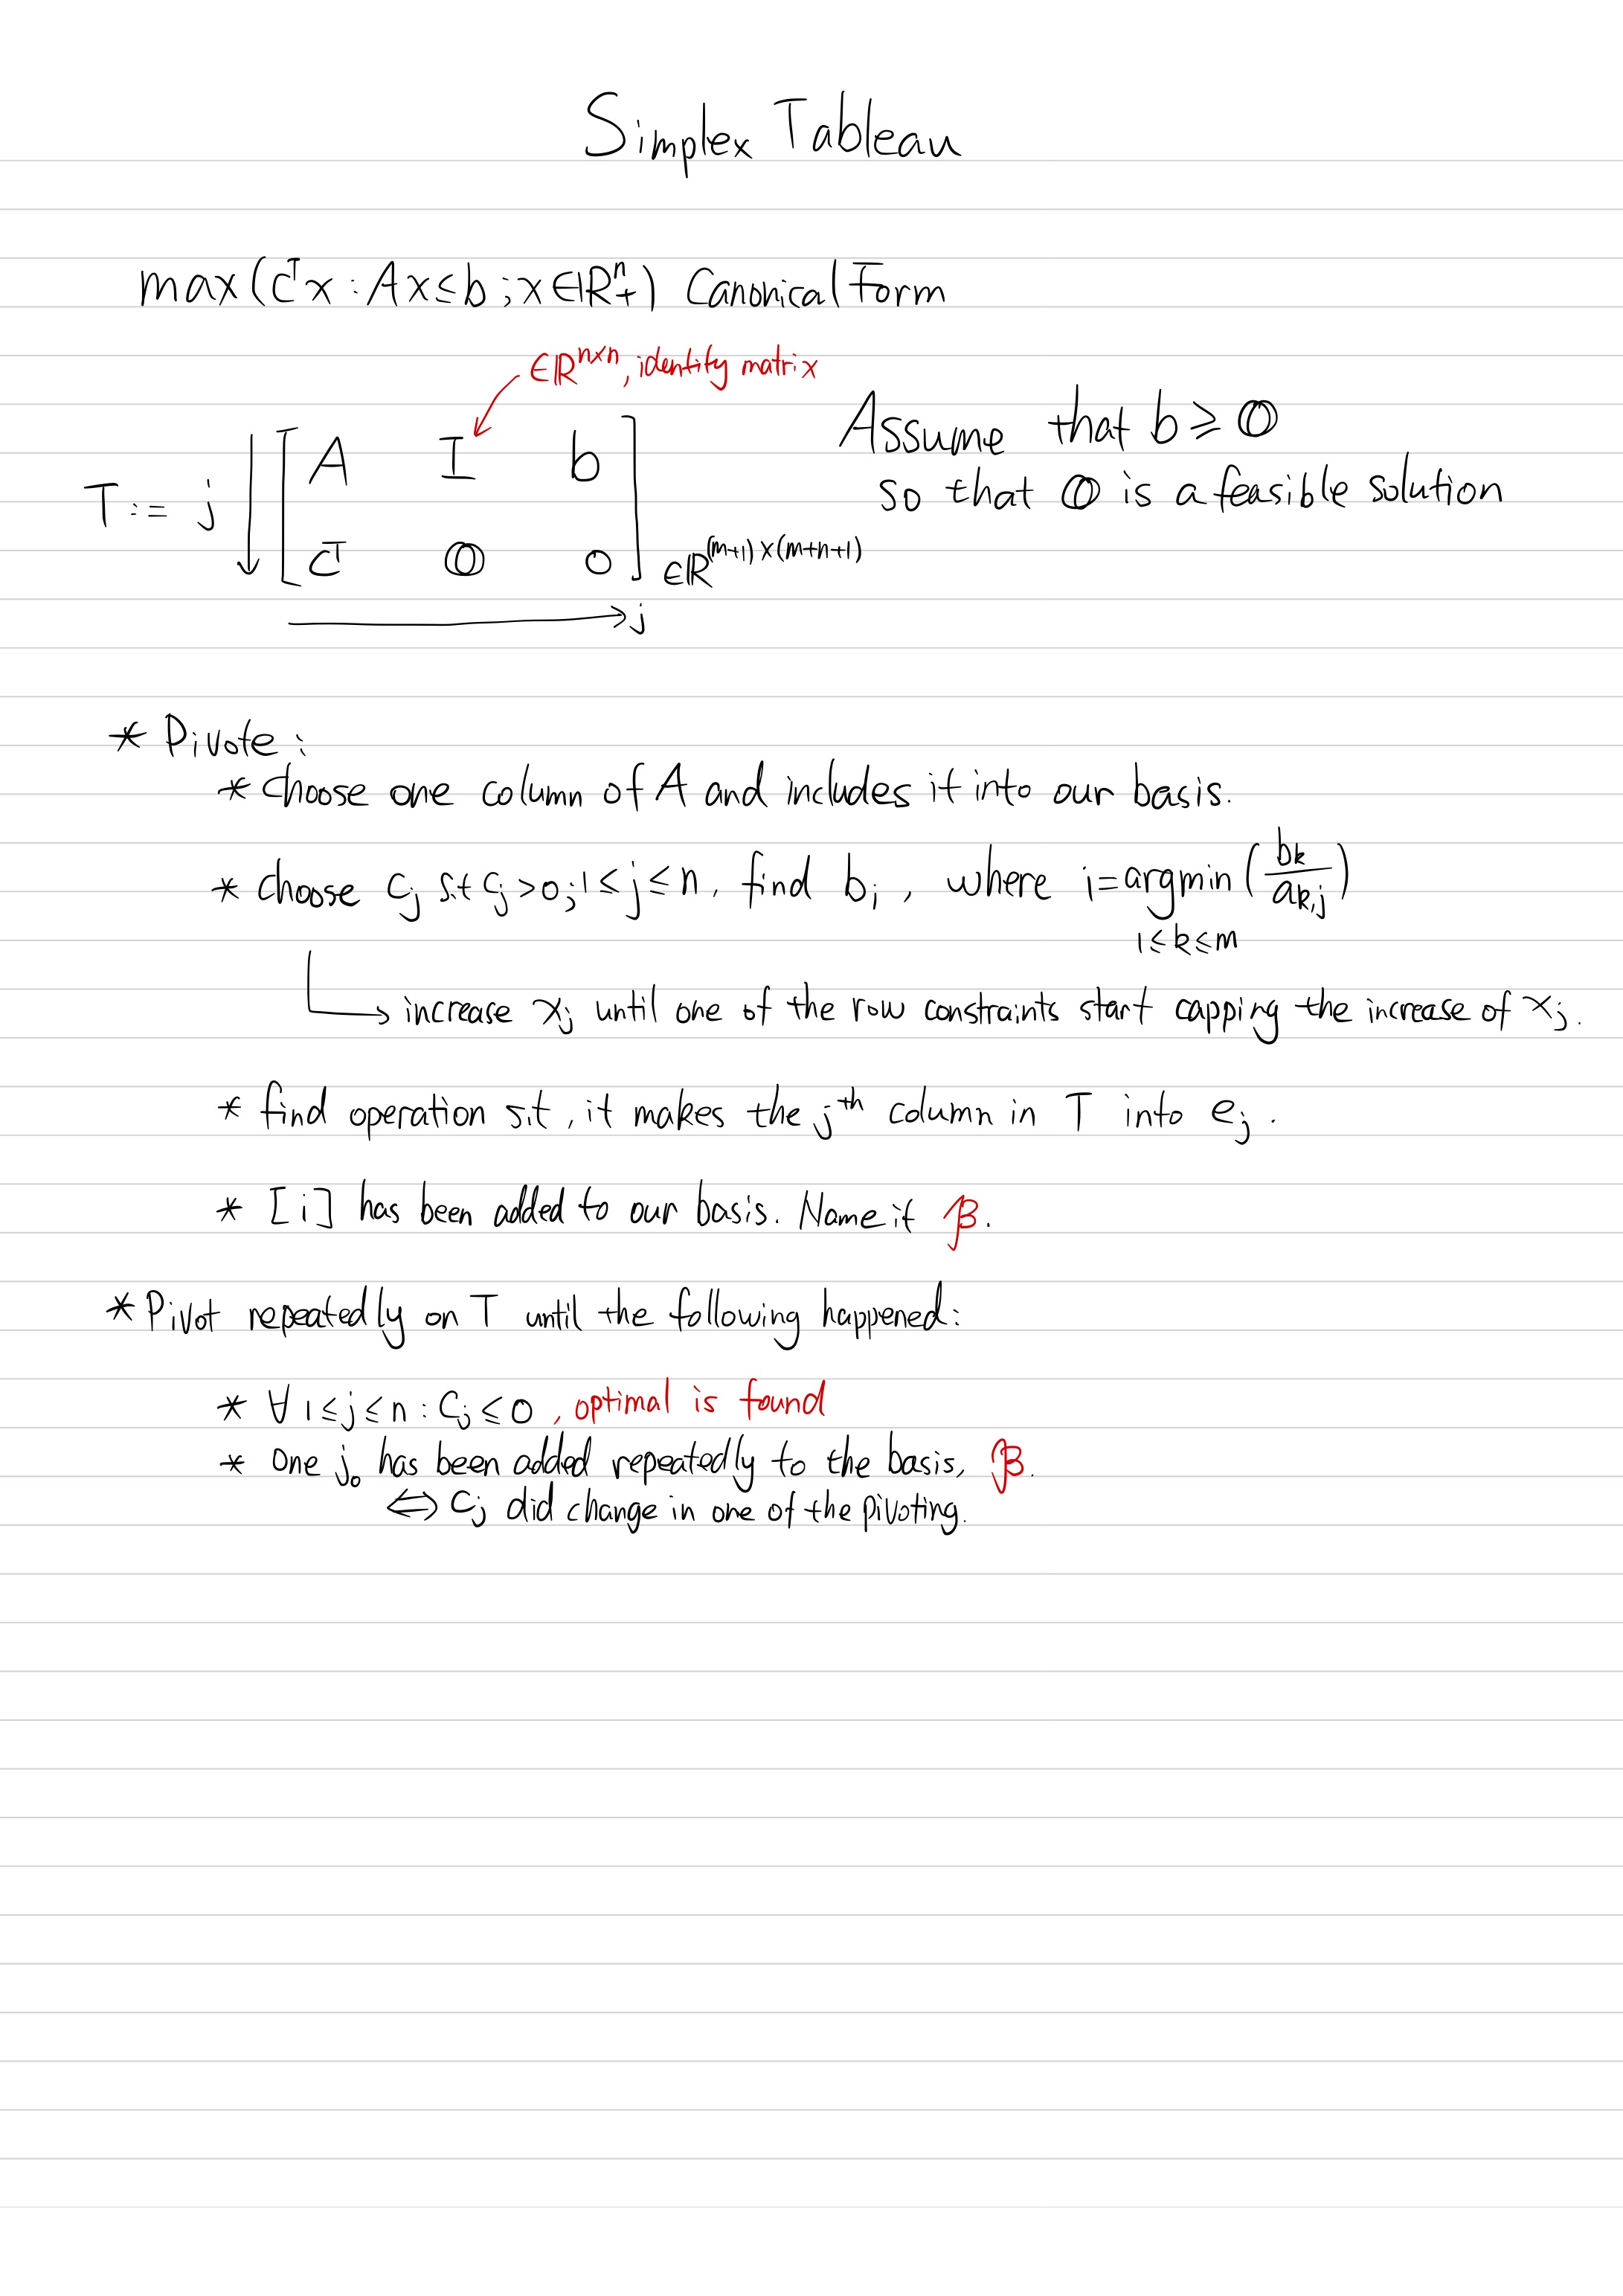 Simplex Tableau
max(cᵀx : Ax ≤ b ; x ∈ ℝⁿ₊) Canonical Form
∈ℝⁿˣⁿ, identity matrix
Assume that b ≥ 𝟘
so that 𝟘 is a feasible solution
T := j ↓ [ A I b
cᵀ 𝟘 0 ] ∈ℝ^{(m+1)×(m+n+1)}
→ j
* Pivote :
* choose one column of A and includes it into our basis.
* choose c_j s.t c_j > 0 ; 1 ≤ j ≤ n, find b_i , where i = argmin_{1≤k≤m} ( b_k / a_{k,j} )
↳ increase x_j until one of the row constraints start capping the increase of x_j .
* find operation s.t , it makes the jᵗʰ column in T into e_j .
* [i] has been added to our basis. Name it β .
* Pivot repeatedly on T until the following happened :
* ∀ 1 ≤ j ≤ n : C_j ≤ 0 , optimal is found
* One j₀ has been added repeatedly to the basis, β .
⟺ C_j did change in one of the pivoting.